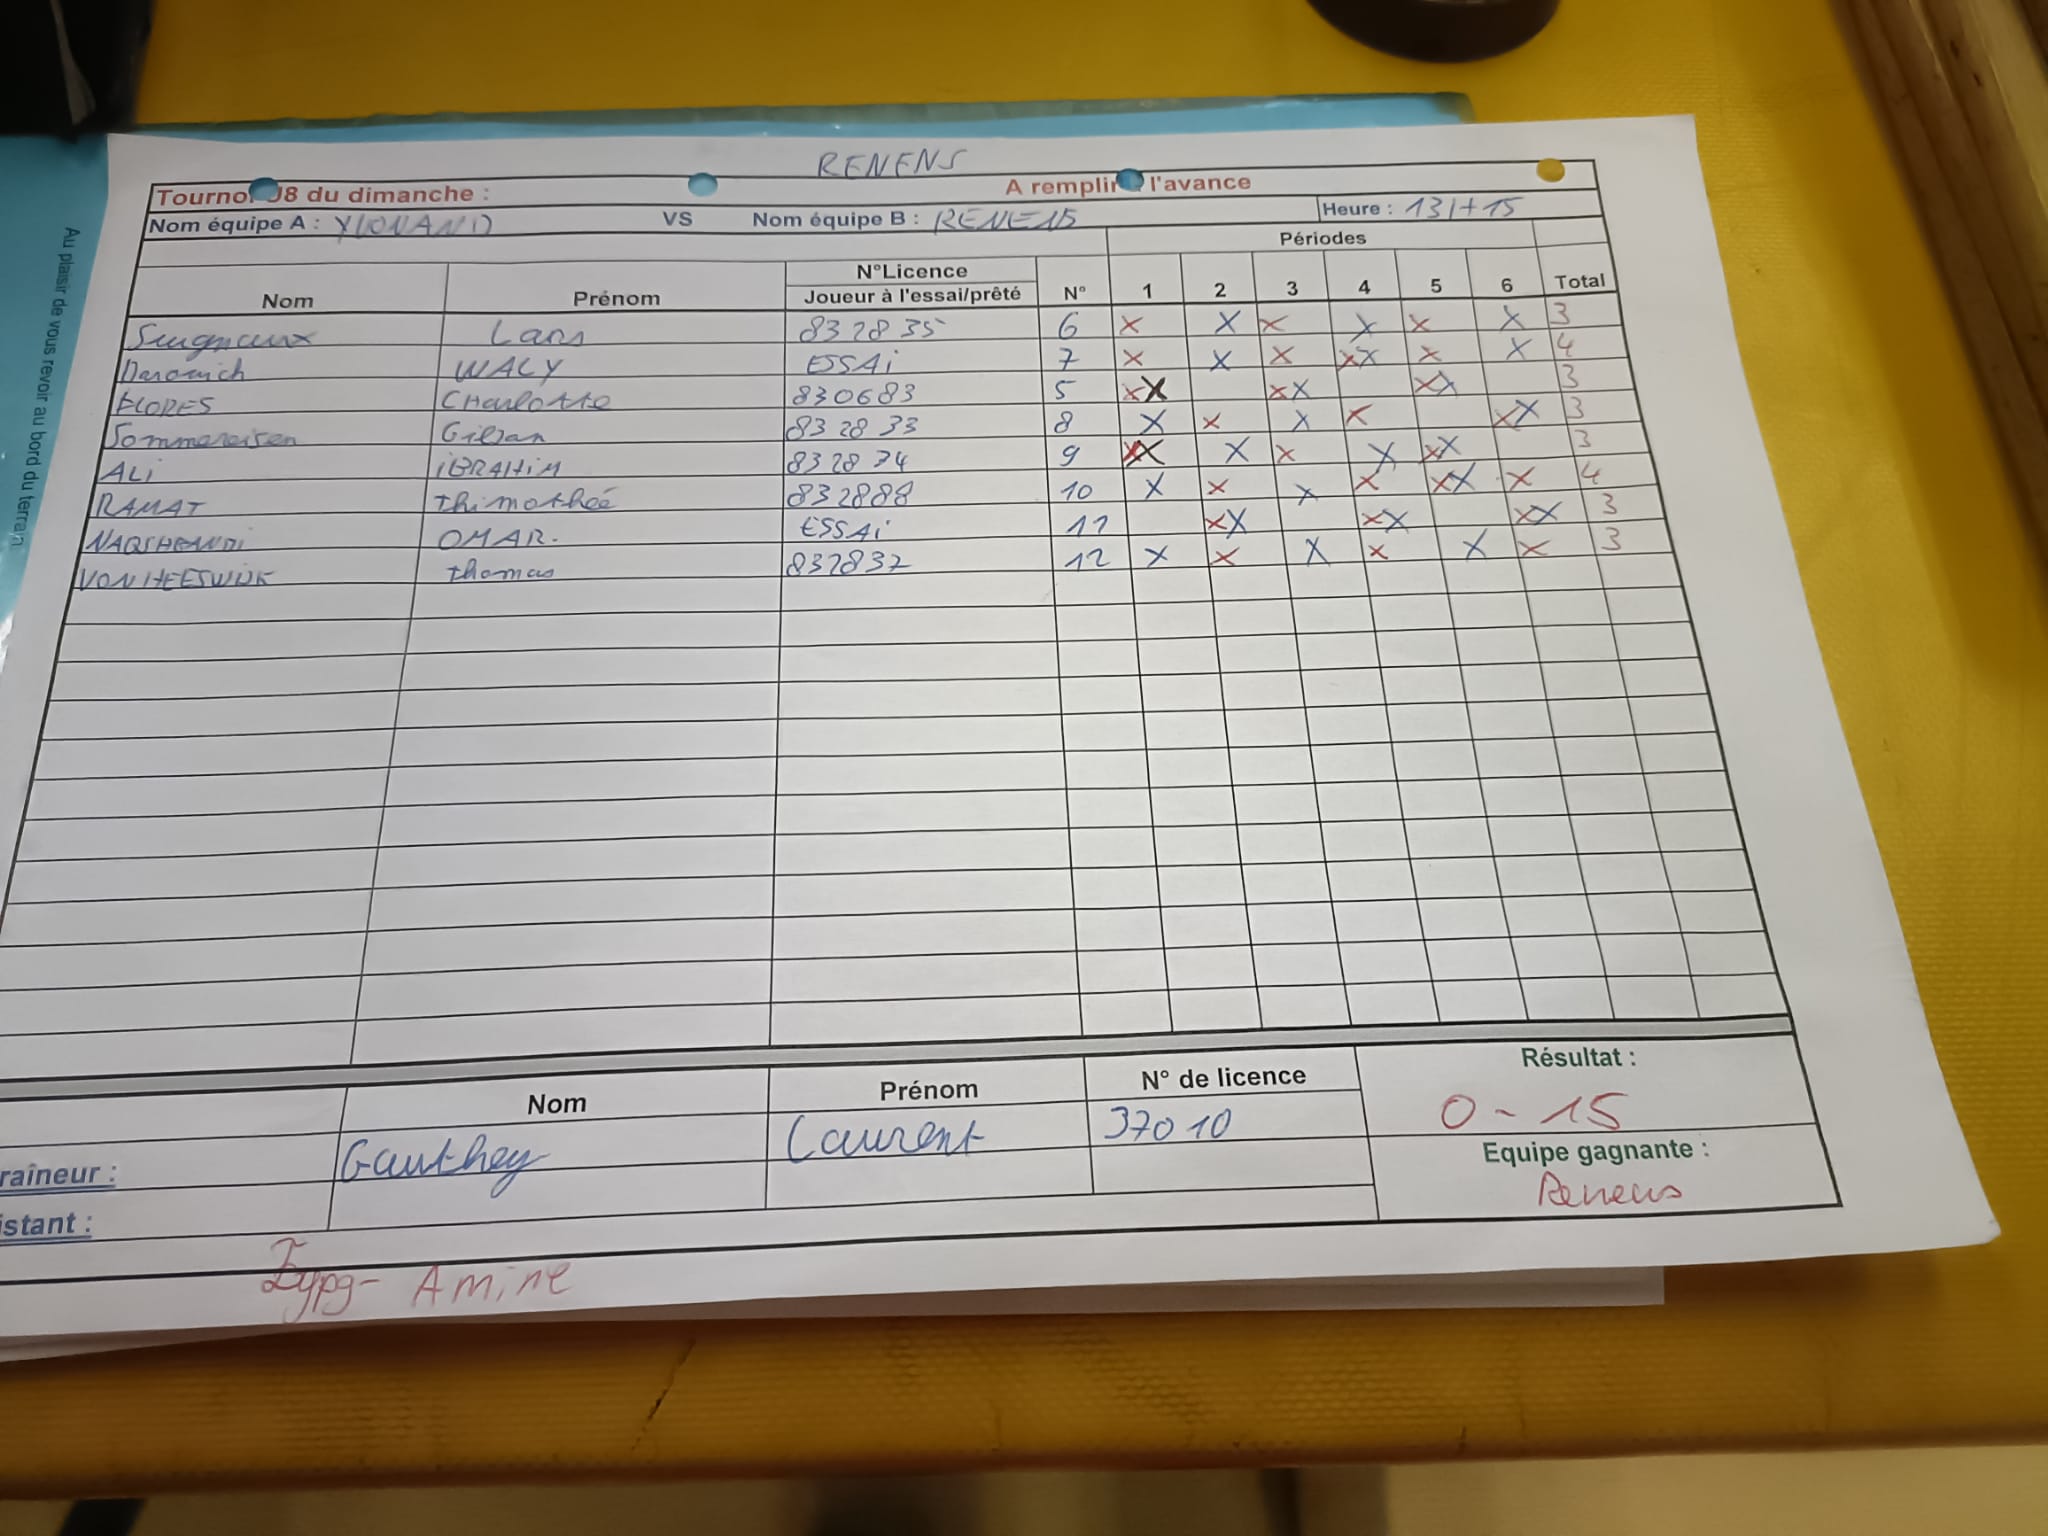 RENENS
Tournoi U8 du dimanche : A remplir à l'avance
Nom équipe A : YVONAND VS Nom équipe B : RENENS Heure : 13H15
Périodes
Nom Prénom N°Licence Joueur à l'essai/prêté N° 1 2 3 4 5 6 Total
Sugnaux Lans 832835 6 X X X X X X 3
Darowich WALY ESSAi 7 X X X XX X X 4
FLORES CHarlotte 830683 5 XX XX XX 3
Sommereisen Gilian 832833 8 X X X X XX 3
ALi iBRAHiM 832874 9 XX X X X XX 3
RAMAT thimotheé 832888 10 X X X X XX X 4
NAQSHBANDi OMAR. ESSAi 11 XX XX XX 3
VONHEESWIJK thomas 832837 12 X X X X X X 3
Nom Prénom N° de licence Résultat :
raîneur : Gauthey Laurent 37010 0 - 15
istant : Equipe gagnante :
Renens
Amine
Au plaisir de vous revoir au bord du terrain